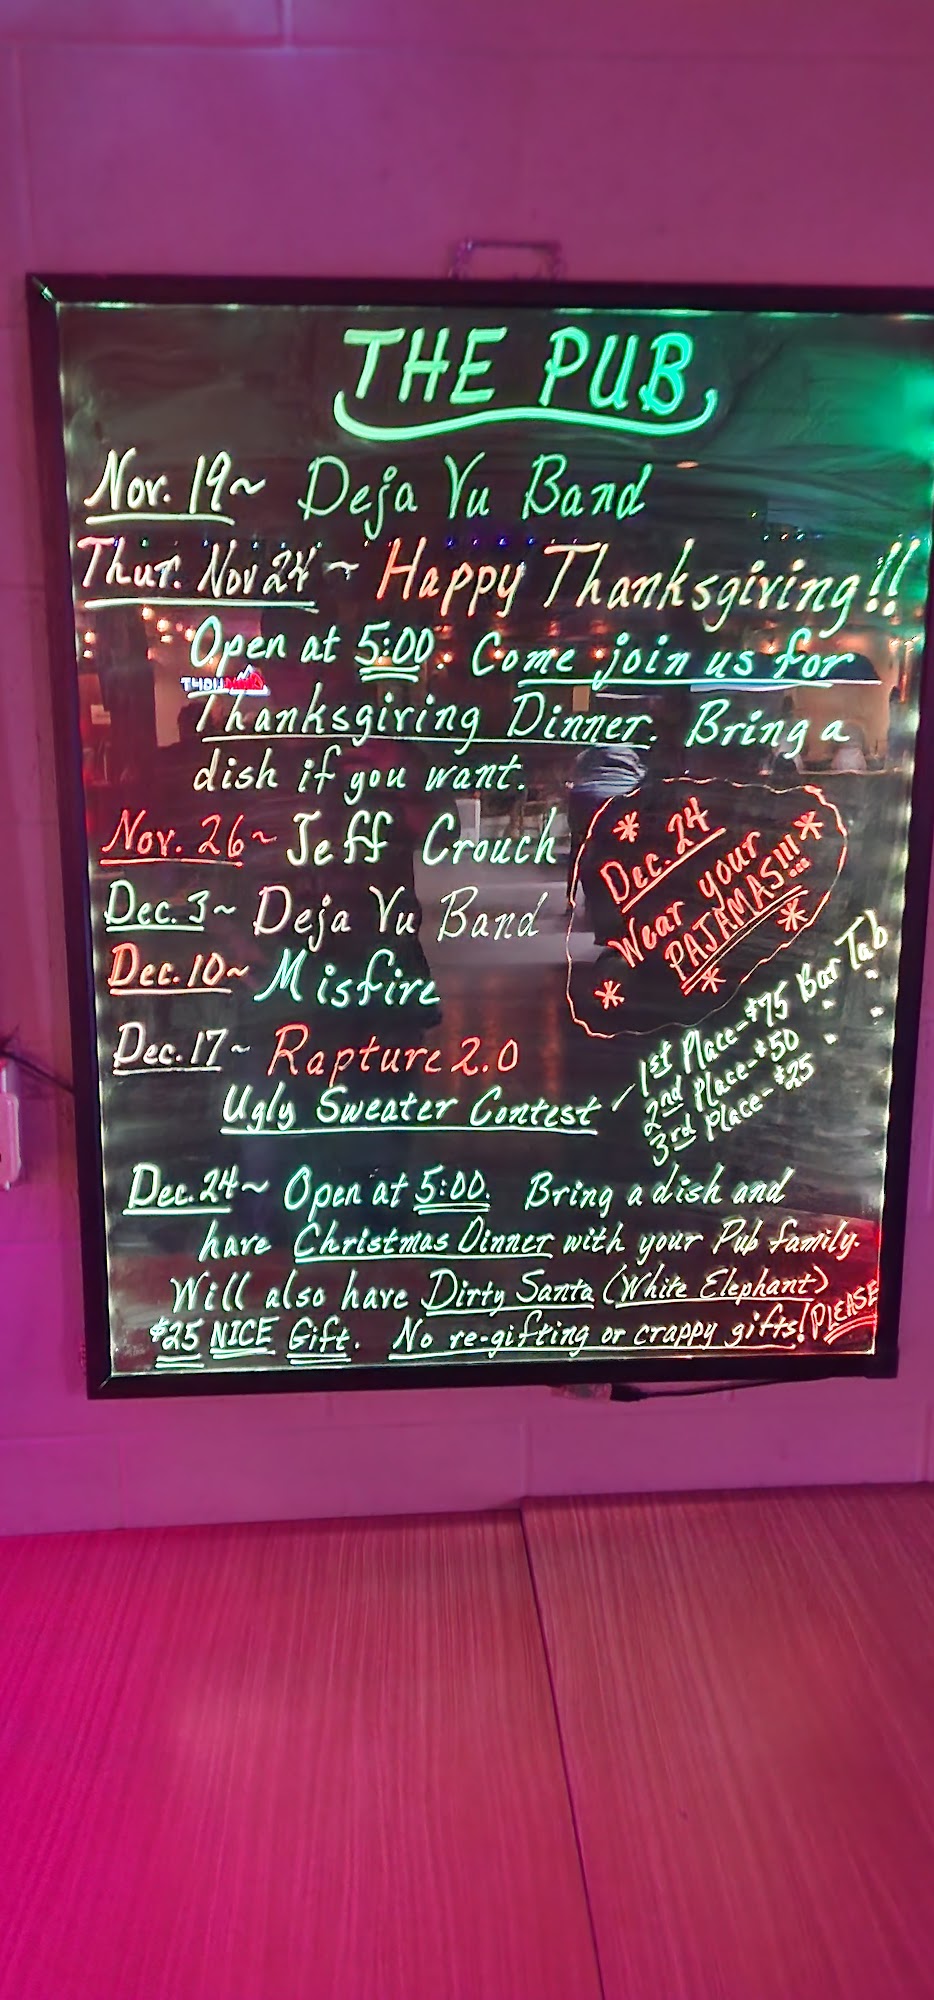 THE PUB
Nov. 19~ Deja Vu Band
Thur. Nov 24 ~ Happy Thanksgiving!!
Open at 5:00. Come join us for
Thanksgiving Dinner. Bring a
dish if you want.
Nov. 26~ Jeff Crouch
Dec. 3~ Deja Vu Band
Dec. 10~ Misfire
Dec. 17~ Rapture 2.0
Ugly Sweater Contest
1st Place-$75 Bar Tab
2nd Place-$50 " "
3rd Place-$25 " "
* Dec. 24 *
Wear your
PAJAMAS!!!
* * *
Dec. 24~ Open at 5:00. Bring a dish and
have Christmas Dinner with your Pub family.
Will also have Dirty Santa (White Elephant)
$25 NICE Gift. No re-gifting or crappy gifts! PLEASE